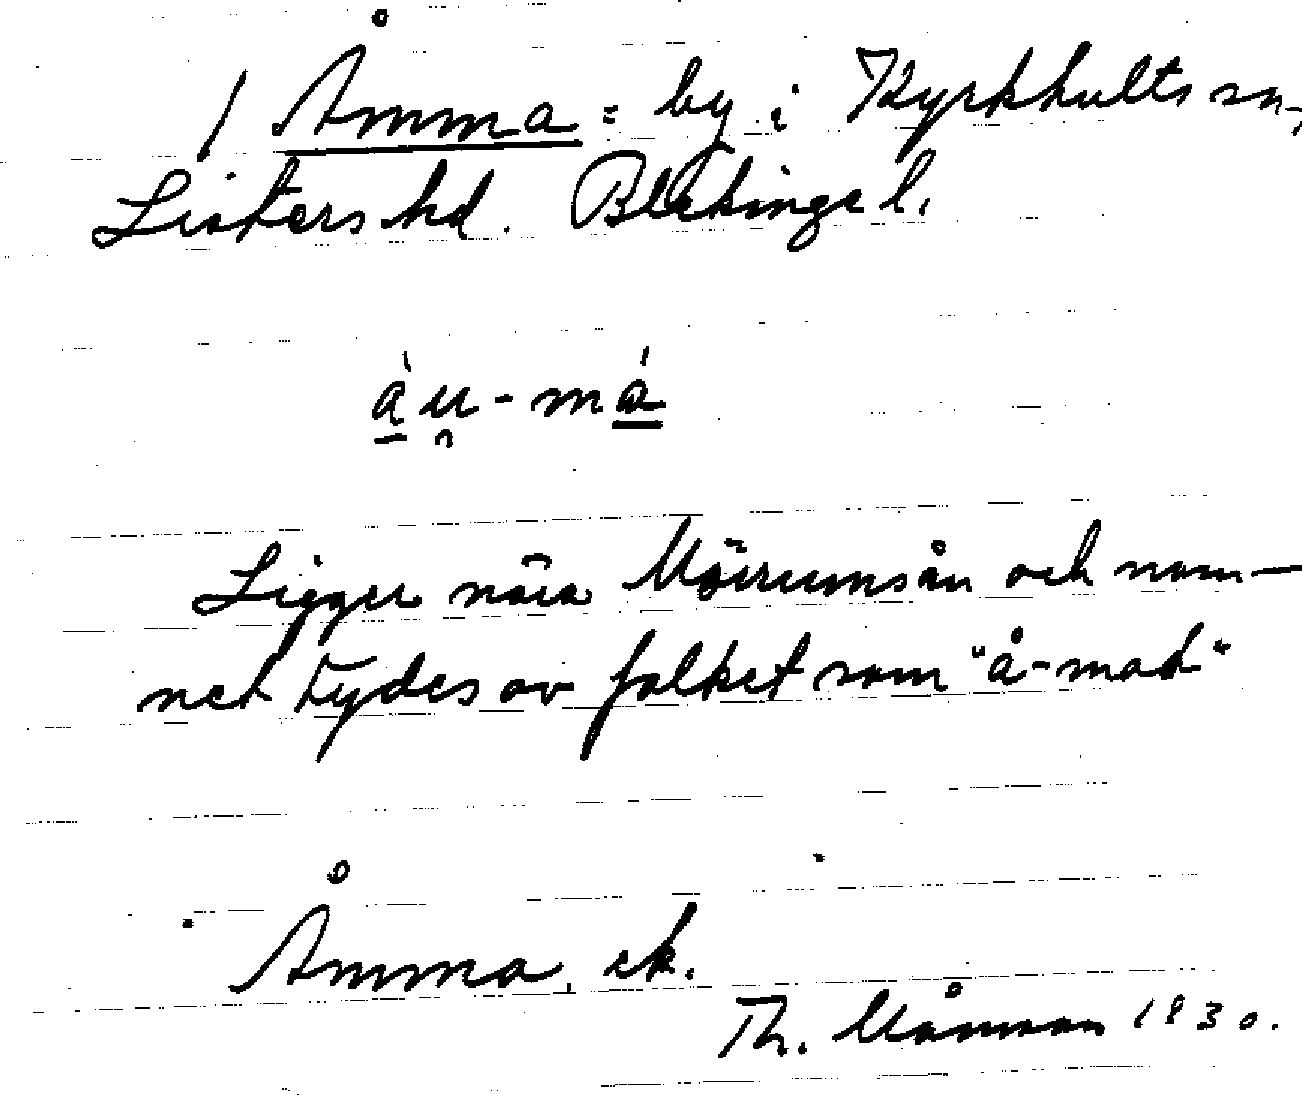 / Åmma = by i Kyrkhults sn,
Listers hd. Blekinge l.
áu̯-má
Ligger nära Mörrumsån och nam-
net tydes av folket som "å-mad"
Åmma, ek.
Th. Månsson 1930.